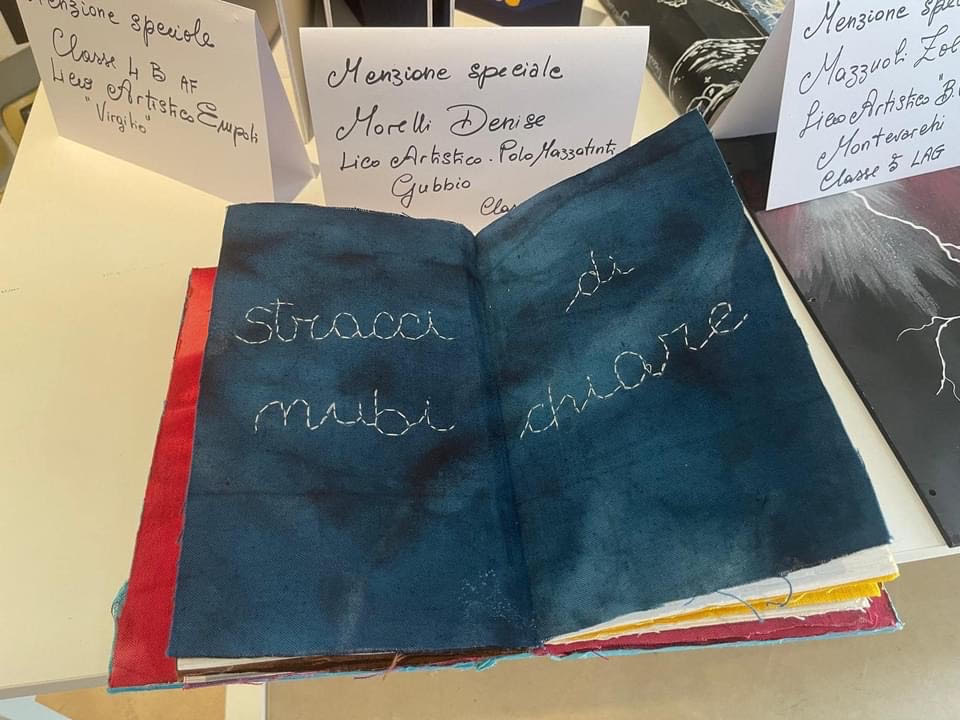 Menzione speciale
Classe 4 B AF
Liceo Artistico Empoli
"Virgilio"
Menzione speciale
Morelli Denise
Lico Artistico . Polo Mazzatinti
Gubbio
Menzione
Mazzuoli
Liceo Artistico
Montevarchi
Classe 5 LAG
stracci di
nubi chiare